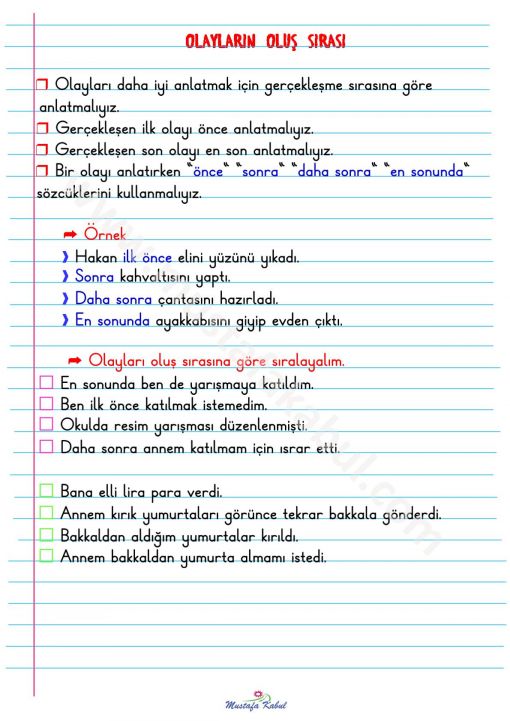 OLAYLARIN OLUŞ SIRASI
Olayları daha iyi anlatmak için gerçekleşme sırasına göre
anlatmalıyız.
Gerçekleşen ilk olayı önce anlatmalıyız.
Gerçekleşen son olayı en son anlatmalıyız.
Bir olayı anlatırken “önce“ “sonra“ “daha sonra“ “en sonunda“
sözcüklerini kullanmalıyız.
Örnek
Hakan ilk önce elini yüzünü yıkadı.
Sonra kahvaltısını yaptı.
Daha sonra çantasını hazırladı.
En sonunda ayakkabısını giyip evden çıktı.
Olayları oluş sırasına göre sıralayalım.
En sonunda ben de yarışmaya katıldım.
Ben ilk önce katılmak istemedim.
Okulda resim yarışması düzenlenmişti.
Daha sonra annem katılmam için ısrar etti.
Bana elli lira para verdi.
Annem kırık yumurtaları görünce tekrar bakkala gönderdi.
Bakkaldan aldığım yumurtalar kırıldı.
Annem bakkaldan yumurta almamı istedi.
www.mustafakabul.com
Mustafa Kabul